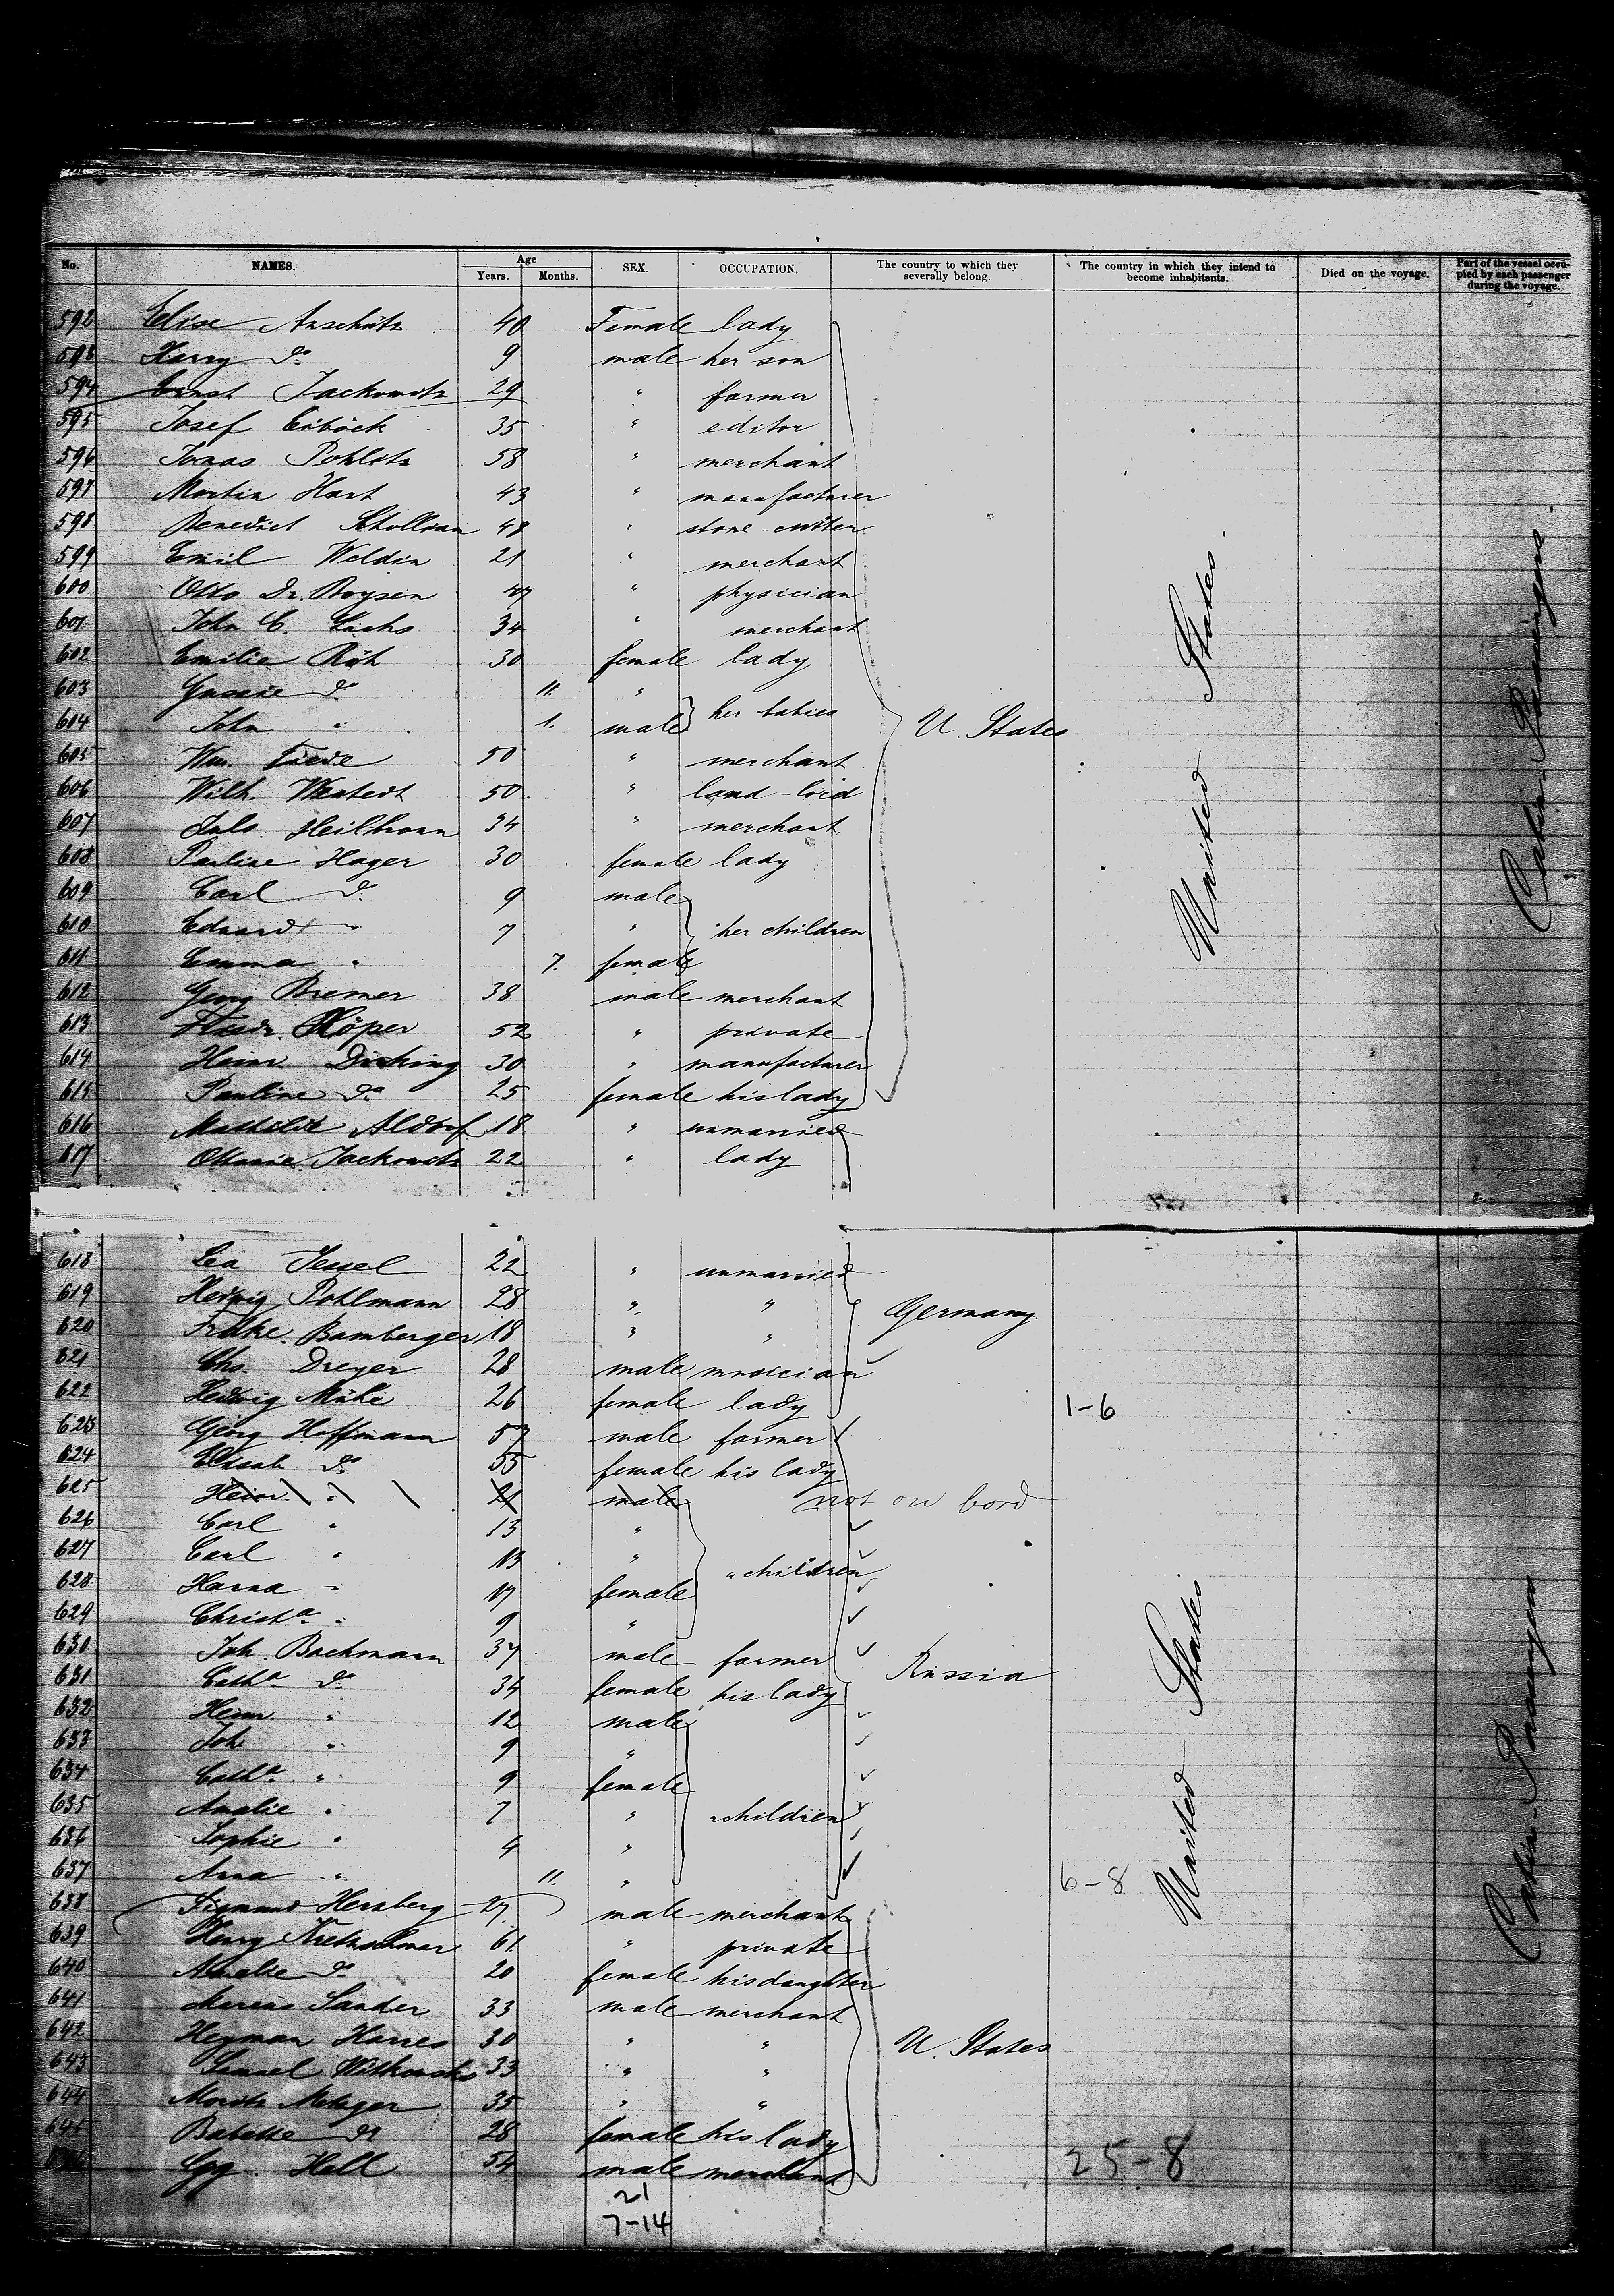 No. NAMES. Age Years. Months. SEX. OCCUPATION. The country to which they severally belong. The country in which they intend to become inhabitants. Died on the voyage. Part of the vessel occupied by each passenger during the voyage.
592 Elise Anschütz 40 Female lady
593 Harry do 9 male her son
594 Ernst Jackowitz 29 " farmer
595 Josef Eiböck 35 " editor
596 Jonas Pohlitz 58 " merchant
597 Martin Hart 43 " manufacturer
598 Benedict 48 " stone-cutter
599 Emil Weldin 21 " merchant
600 Otto Dr. Boysen " physician
601 John C. Sachs 34 " merchant
602 Emilie Röh 30 female lady
603 Gussie do 11. "
her babies
604 John " 1. male U. States
605 Wm. 50 " merchant
606 Wilh. 50 " land-lord
607 Juls. Heilbronn 34 " merchant
608 Pauline Hager 30 female lady
609 Carl do 9 male
610 Eduard " 7 " her children
611 Emma " 7. female
612 Georg Bremer 38 male merchant
613 Friedr. Röper 52 " private
614 Heinr. Dicking 30 " manufacturer
615 Pauline do 25 female his lady
616 Mathilde Aldorf 18 " unmarried
617 Ottonie Jackowitz 22 " lady
United States.
Cabin-Passengers.
618 Lea Jessel 22 " unmarried
619 Hedwig Pohlmann 28 " " Germany.
620 Frdke. Bamberger 18 " "
621 Chs. Dreyer 28 male musician
622 Hedwig 26 female lady 1-6
623 Georg Hoffmann 57 male farmer
624 Elisab. do 55 female his lady
625 Heinr. " 21 male not on bord
626 Carl " 13 "
627 Carl " 13 " " children
628 Hanna " 17 female
629 Christa. " 9 "
630 Joh. Bachmann 37 male farmer
631 Catha. do 34 female his lady Russia
632 Heinr. " 12 male
633 Joh. " 9 "
634 Catha. " 9 female
635 Amalie " 7 " " children
636 Sophie " 4 "
637 Anna " 11. " 6-8
638 Sigmund Herzberg 27 male merchant
639 Henry Kretzschmar 61 " private
640 Amalie do 20 female his daughter
641 Marcus Sander 33 male merchant
642 Heyman Harres 30 " " U. States
643 Samuel Witkowski 33 " "
644 Moritz Metzger 35 " "
645 Babette do 28 female his lady
646 Gg. Hell 54 male merchant 25-8
21
7-14
United States
Cabin-Passengers